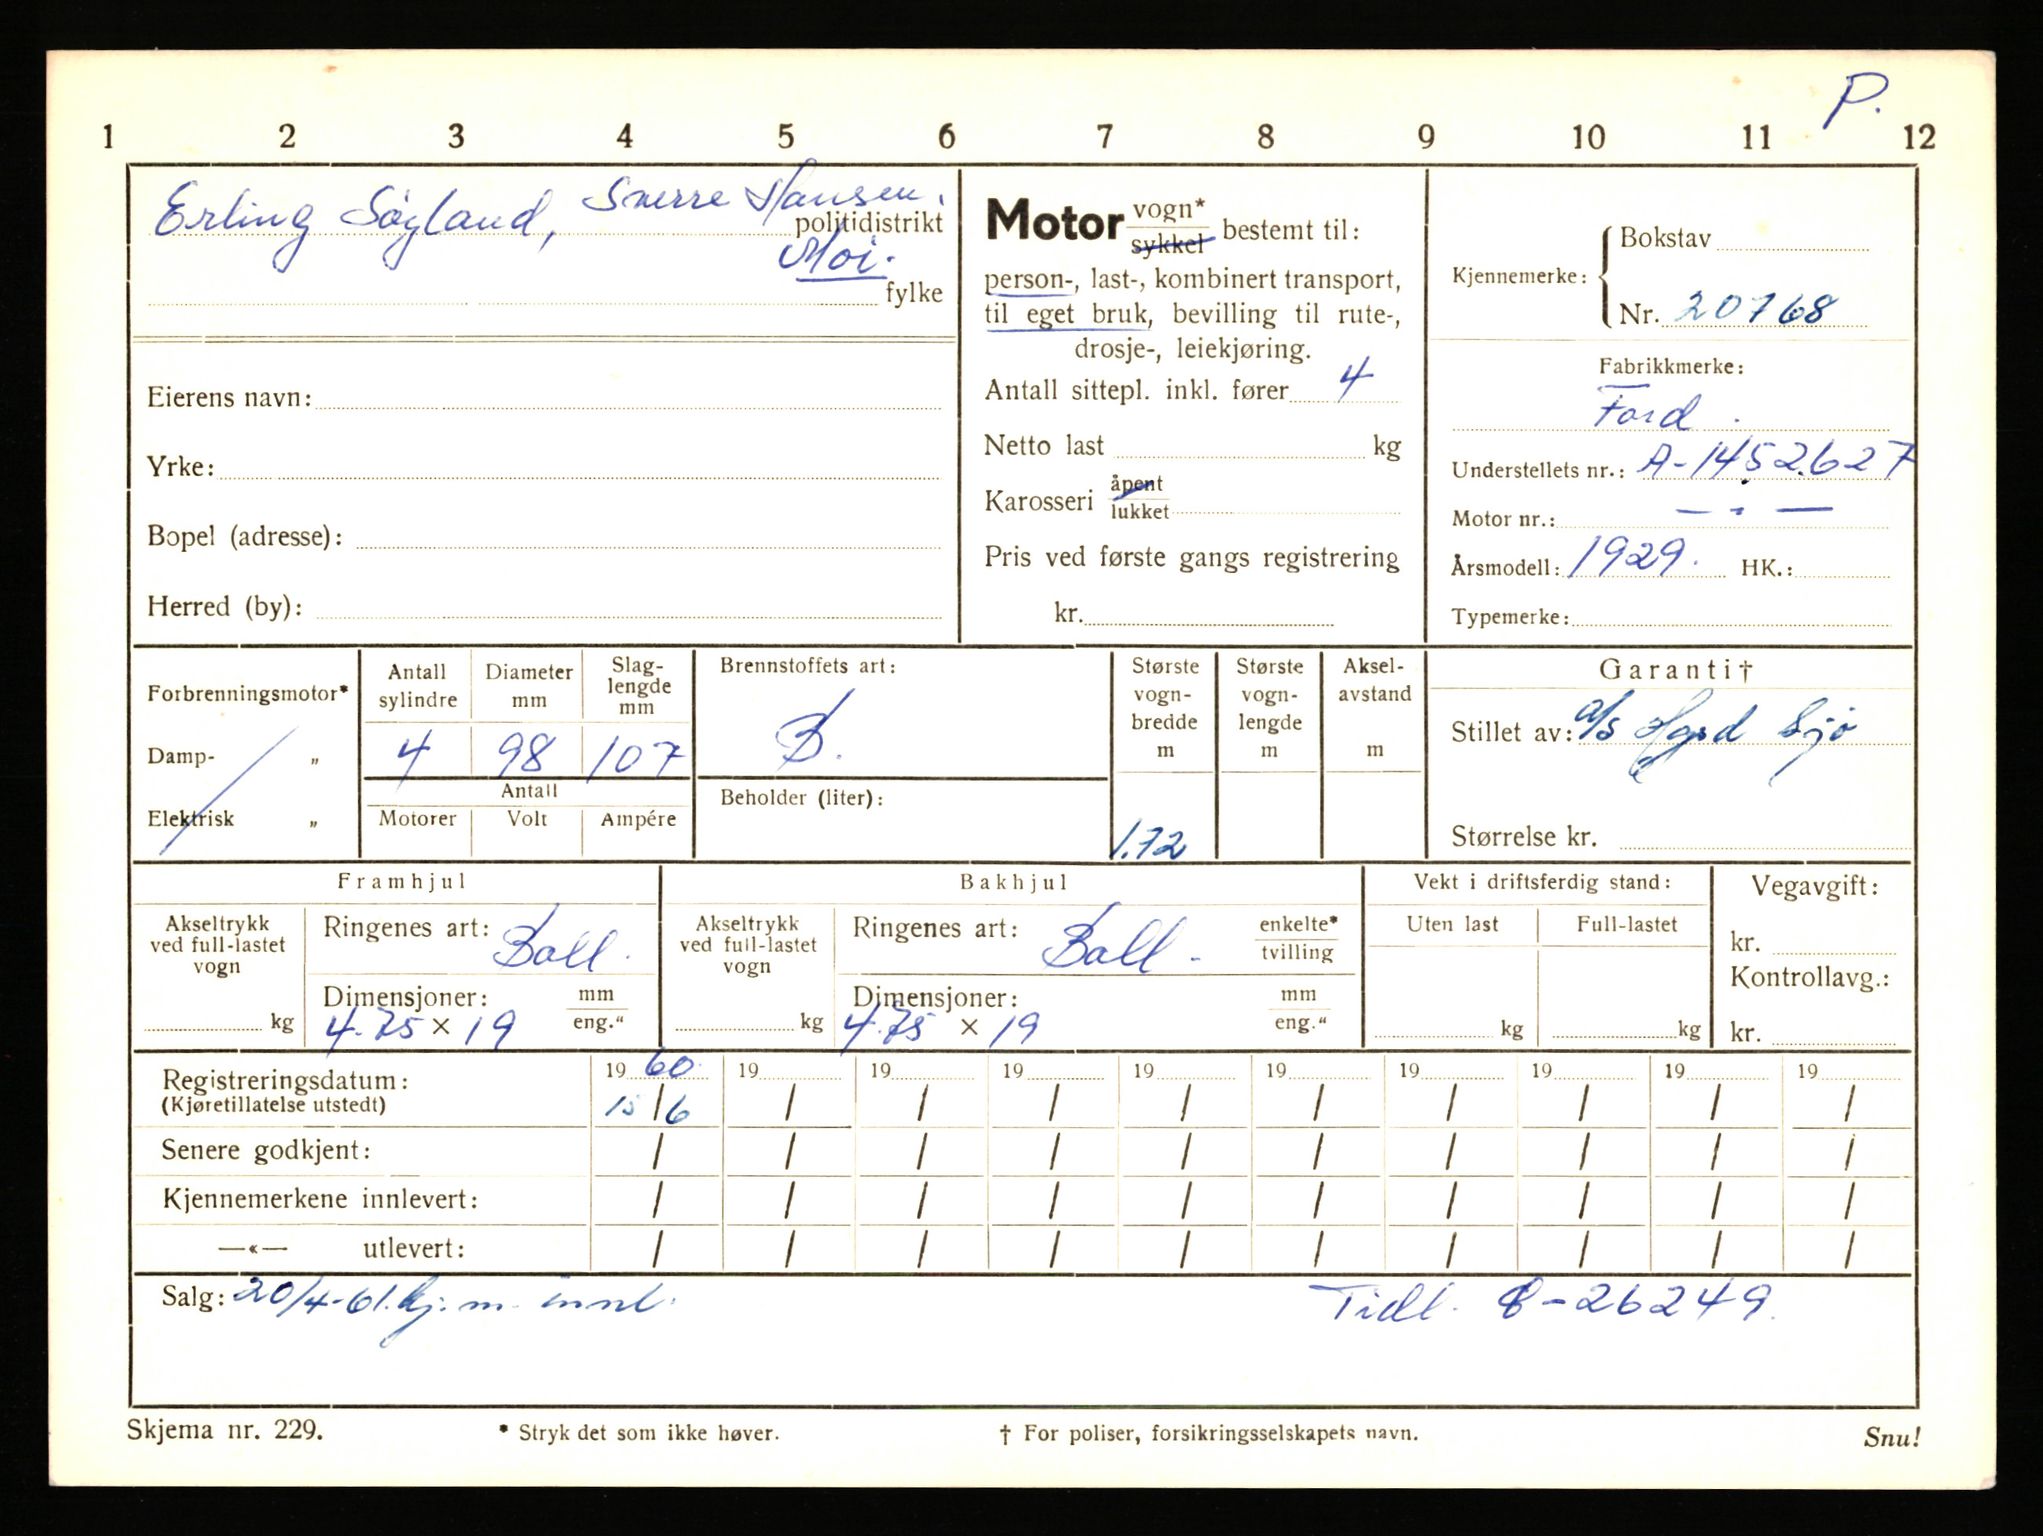 P.
1 2 3 4 5 6 7 8 9 10 11 12
Erling Søyland, Sverre Hansen. politidistrikt
Moi. fylke
Eierens navn:
Yrke:
Bopel (adresse):
Herred (by):
Motor vogn* sykkel bestemt til:
person-, last-, kombinert transport,
til eget bruk, bevilling til rute-,
drosje-, leiekjøring.
Antall sittepl. inkl. fører 4
Netto last kg
Karosseri åpent lukket
Pris ved første gangs registrering
kr.
Kjennemerke: Bokstav
Nr. 20768
Fabrikkmerke:
Ford.
Understellets nr.: A-1452627
Motor nr.: — " —
Årsmodell: 1929. HK.:
Typemerke:
Forbrenningsmotor*
Damp- „
Elektrisk „
Antall sylindre Diameter mm Slaglengde mm
4 98 107
Antall
Motorer Volt Ampére
Brennstoffets art:
B.
Beholder (liter):
Største vognbredde m
1.72
Største vognlengde m
Akselavstand m
Garanti†
Stillet av: a/s
Størrelse kr.
Framhjul
Akseltrykk ved full-lastet vogn
kg
Ringenes art: Ball.
Dimensjoner: mm eng."
4.75 × 19
Bakhjul
Akseltrykk ved full-lastet vogn
kg
Ringenes art: Ball. enkelte* tvilling
Dimensjoner: mm eng."
4.75 × 19
Vekt i driftsferdig stand:
Uten last Full-lastet
kg kg
Vegavgift:
kr.
Kontrollavg.:
kr.
Registreringsdatum: 19 60 19 19 19 19 19 19 19 19 19
(Kjøretillatelse utstedt) 15/6 / / / / / / / / /
Senere godkjent: / / / / / / / / / /
Kjennemerkene innlevert: / / / / / / / / / /
—«— utlevert: / / / / / / / / / /
Salg: 20/4-61. kj. m. innl. Tidl. -26249.
Skjema nr. 229. * Stryk det som ikke høver. † For poliser, forsikringsselskapets navn. Snu!